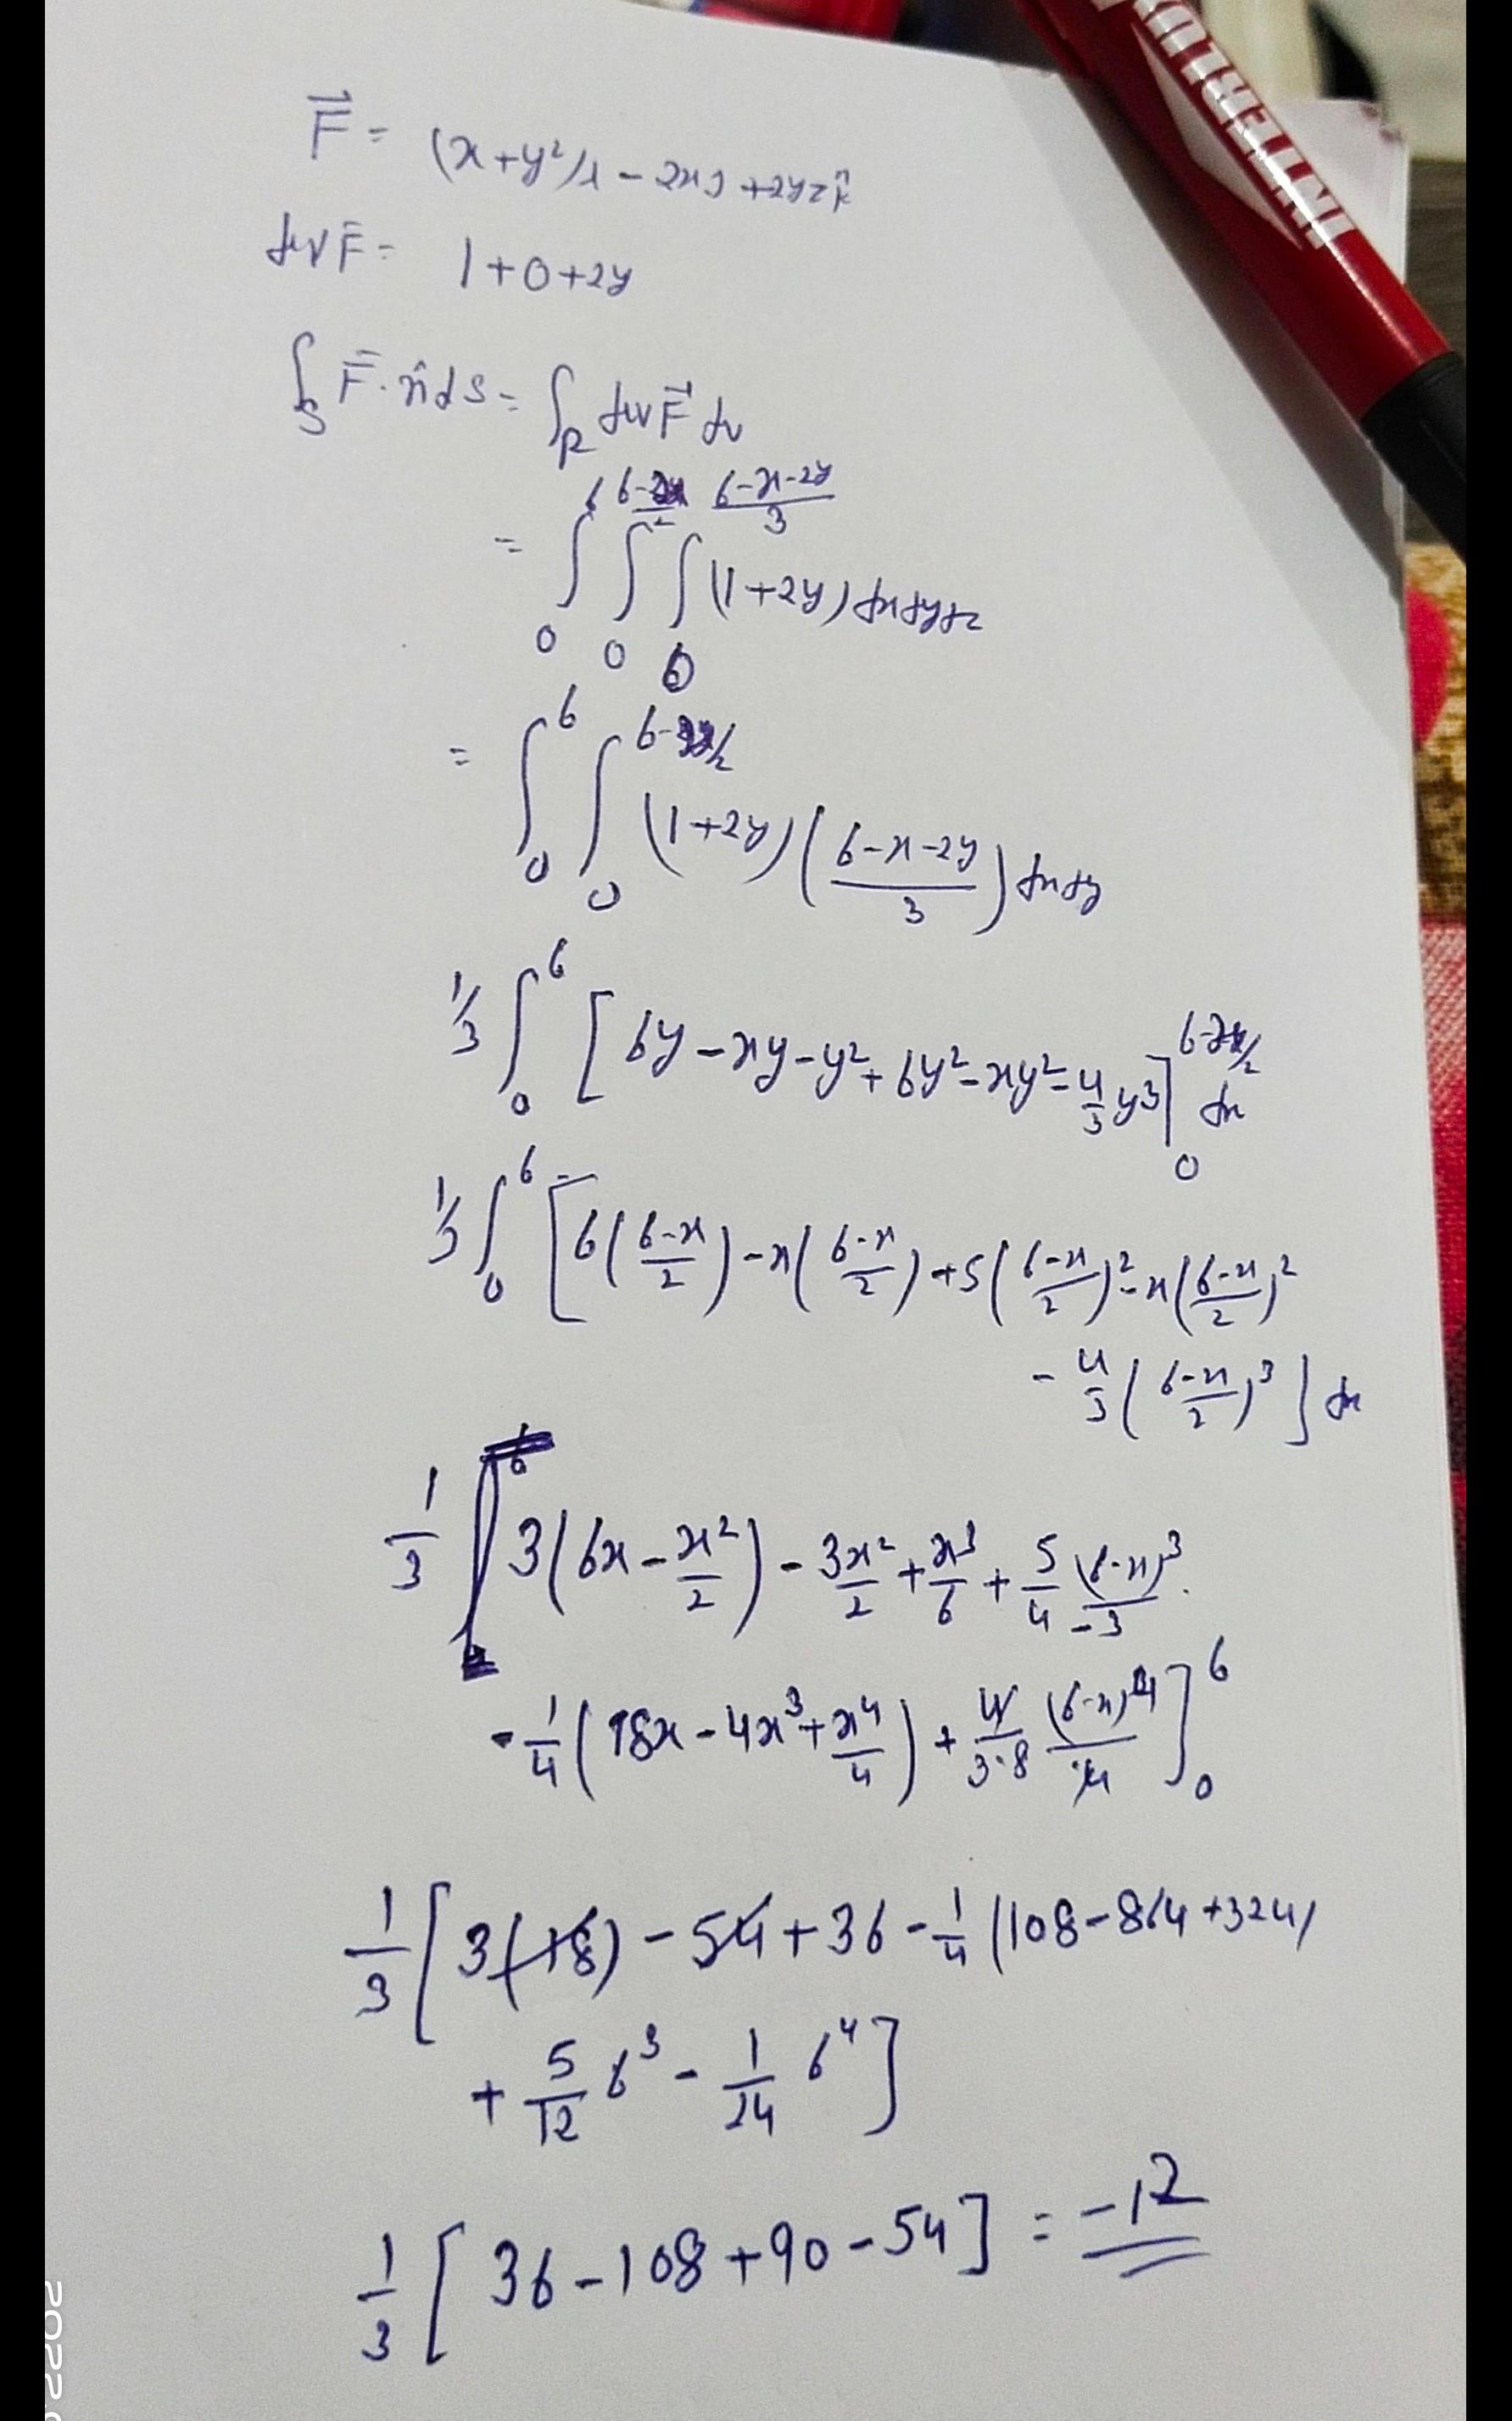 INTERLUX
F⃗ = (x+y²)î - 2xĵ + 2yzk̂
div F̄ = 1+0+2y
∫_S F̄·n̂ds = ∫_R div F⃗ dv
= ∫_0^6 ∫_0^{6-x/2} ∫_0^{6-x-2y/3} (1+2y) dxdydz
= ∫_0^6 ∫_0^{6-x/2} (1+2y)(6-x-2y/3) dxdy
1/3 ∫_0^6 [6y-xy-y²+6y²-xy²-4/3 y3]_0^{6-x/2} dx
1/3 ∫_0^6 [6(6-x/2)-x(6-x/2)+5(6-x/2)²-x(6-x/2)²
-4/3(6-x/2)³] dx
1/3 [3(6x-x²/2)-3x²/2+x³/6+5/4 (6-x)³/-3
-1/4(18x-4x³+x⁴/4)+4/3·8 (6-x)⁴/4]_0^6
1/3[3(18)-54+36-1/4(108-864+324)
+5/12 6³-1/24 6⁴]
1/3[36-108+90-54] = -12